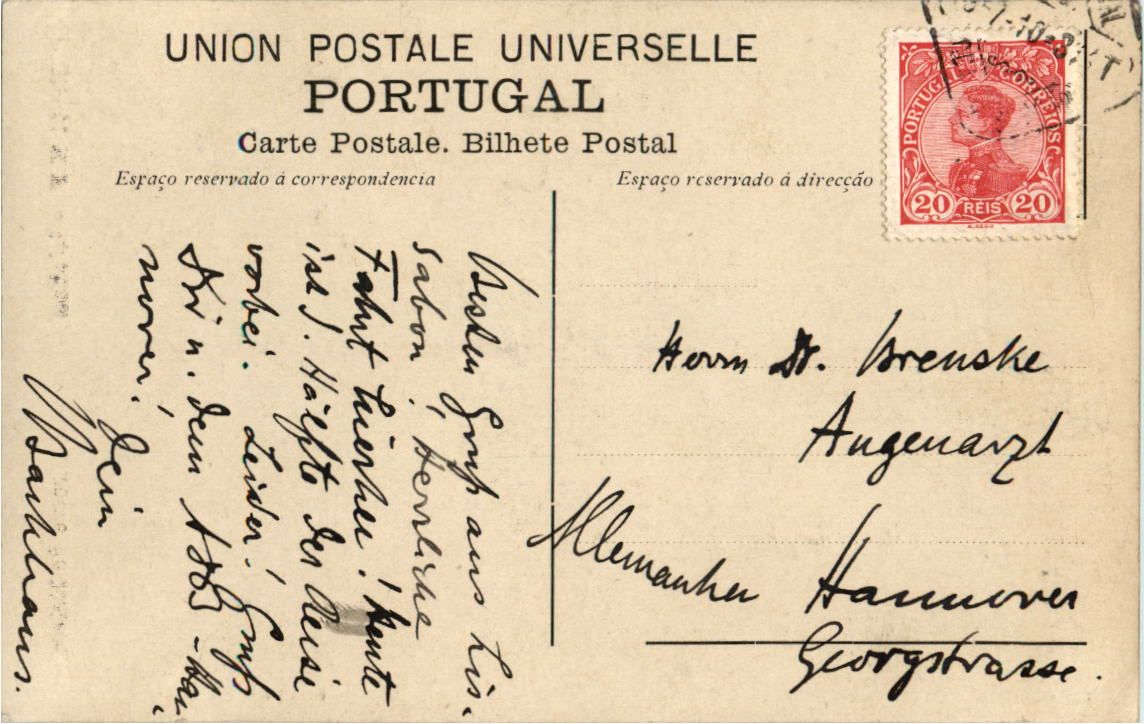 UNION POSTALE UNIVERSELLE
PORTUGAL
Carte Postale. Bilhete Postal
Espaço reservado á correspondencia
Espaço reservado á direcção
PORTUGAL CORREIOS
20 RÉIS 20
Besten Gruß aus Lis-
sabon! Herrliche
Fahrt hierher! Heute
ist d. Hälfte der Reise
vorbei. Leider! Gruß
Dir u. dem
nover!
Dein
Herrn Dr. Brenske
Augenarzt
Allemanha Hannover
Georgstrasse.